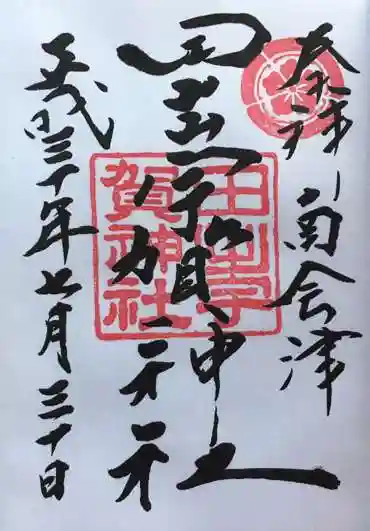 奉拝 南会津
田出宇賀神社
熊野神社
平成三十年七月三十日
田出宇
賀神社